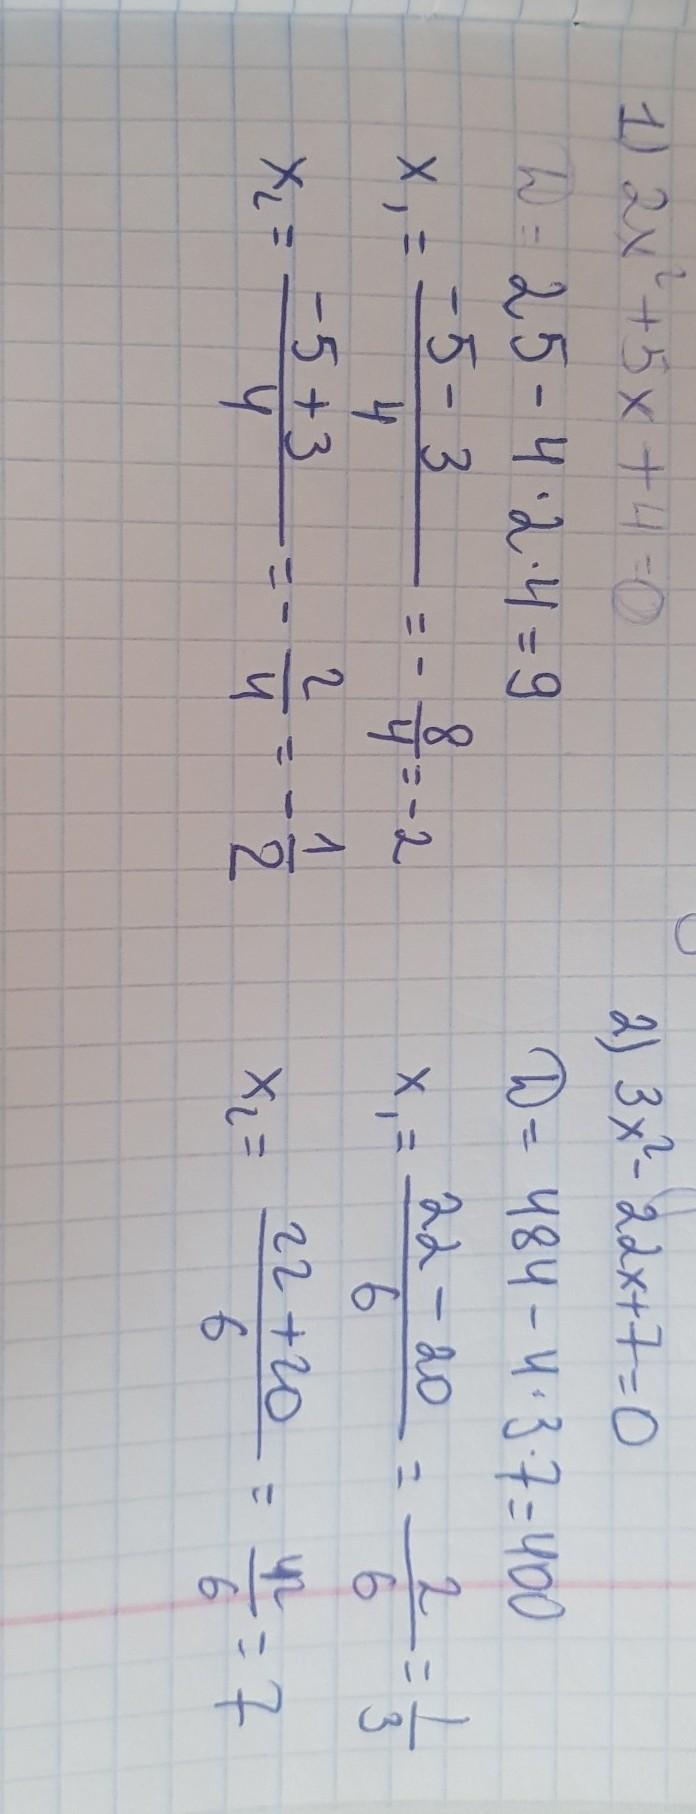 1) 2x² + 5x + 4 = 0
D = 25 - 4·2·4 = 9
x₁ = (-5 - 3)/4 = -8/4 = -2
x₂ = (-5 + 3)/4 = -2/4 = -1/2
2) 3x² - 22x + 7 = 0
D = 484 - 4·3·7 = 400
x₁ = (22 - 20)/6 = 2/6 = 1/3
x₂ = (22 + 20)/6 = 42/6 = 7